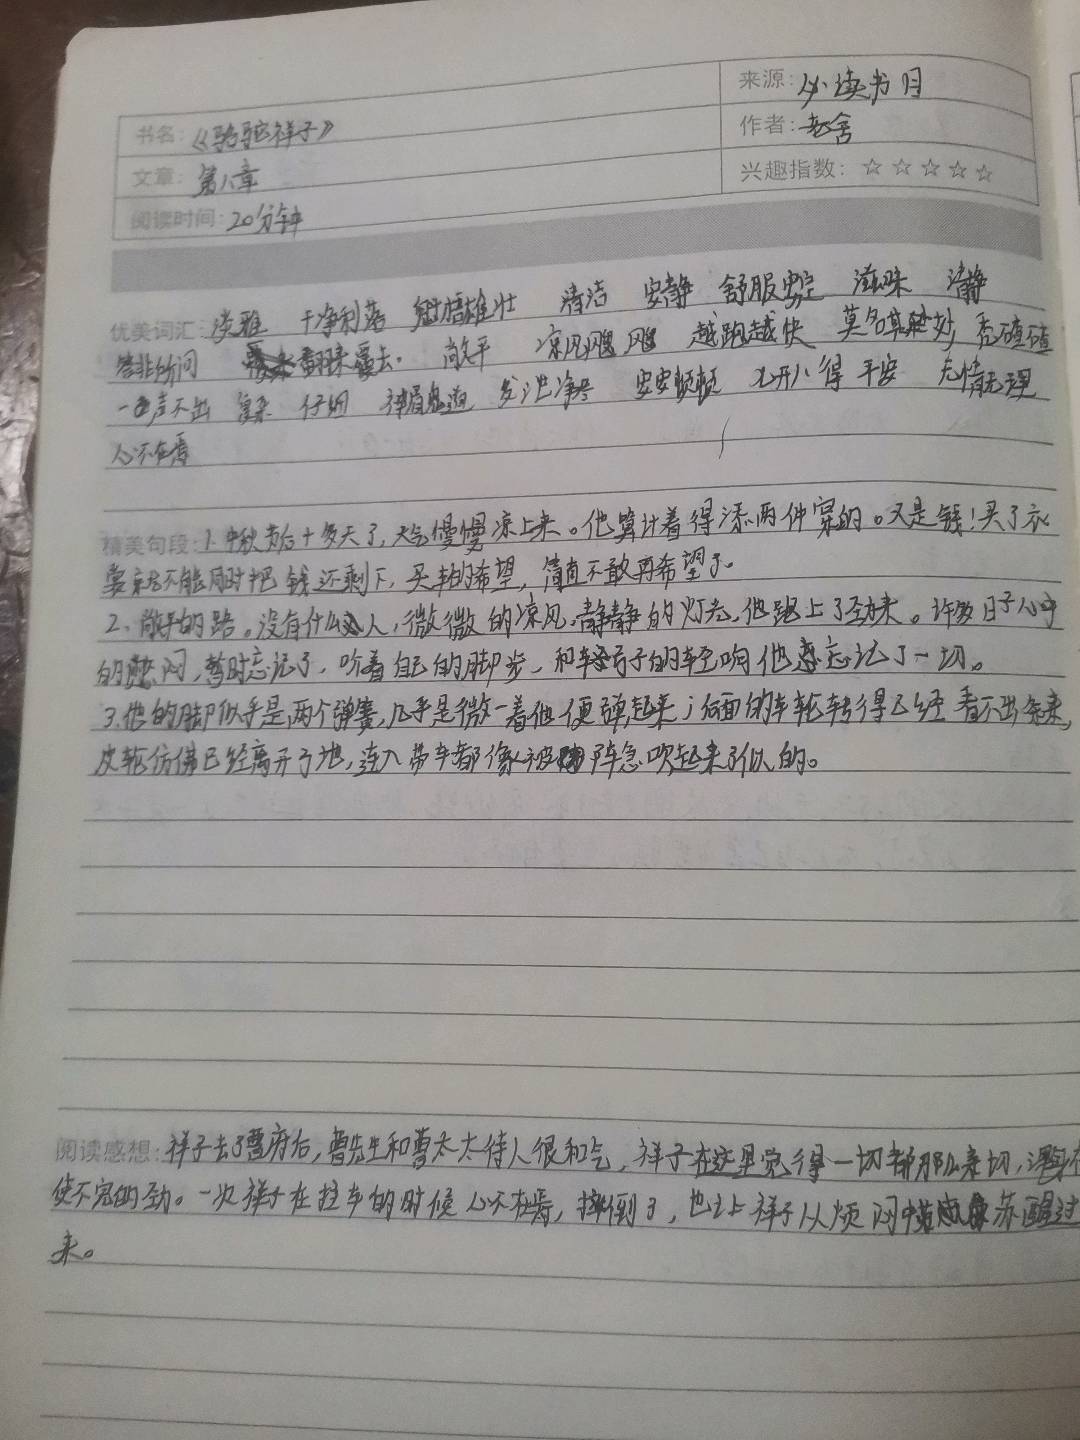 来源：必读书目
书名：《骆驼祥子》
作者：老舍
文章：第八章
兴趣指数：☆☆☆☆☆
阅读时间：20分钟
优美词汇：淡雅 干净利落 魁梧雄壮 清洁 安静 舒服 滋味 清静
答非所问 翻来覆去 敞平 凉风飕飕 越跑越快 莫名其妙
一声不出 仔细 安安顿顿 平安 无情无理
心不在焉
精美句段：1.中秋节后十多天了，天气慢慢凉上来。他算计着得添两件穿的。又是钱！买了衣
裳就不能同时把钱还剩下，买车的希望，简直不敢再希望了。
2、敞平的路。没有什么人，微微的凉风，静静的灯光，他跑上了劲来。许多日子心中
的憋闷，暂时忘记了，听着自己的脚步，和车弓子的轻响他忘记了一切。
3.他的脚似乎是两个弹簧，几乎是微一着他便弹起来；后面的车轮转得已经看不出条来，
皮轮仿佛已经离开了地，连人带车都像被阵急吹起来了似的。
阅读感想：祥子去了曹府后，曹先生和曹太太待人很和气，祥子在这里觉得一切都那么亲切，浑身有
使不完的劲。一次祥子在拉车的时候心不在焉，摔倒了，也让祥子从烦闷中苏醒过
来。